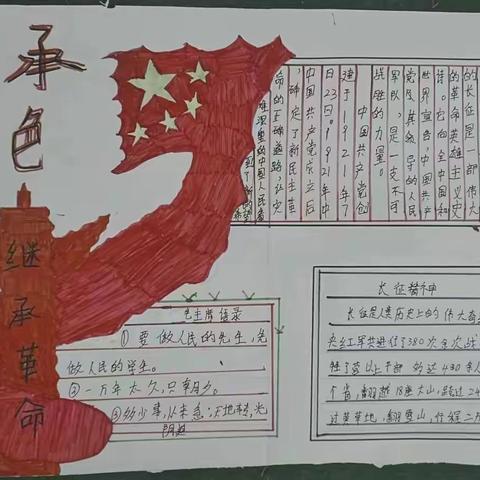 承色
继承革命
的长征是一部伟大
的革命英雄主义史
诗。它向全中国和
世界宣告,中国共产
党及其领导的人民
军队,是一支不可
战胜的力量。
中国共产党创
建于1921年7
日23日。1921年中
中国共产党成立后
,确定了新民主革
命的正确道路,让灾
难深重的中国人民看
到了新的
毛主席语录
① 要做人民的先生,先
做人民的学生。
②一万年太久,只争朝夕。
③多少事,从来急;天地转,光
阴迫
长征精神
长征是人类历史上的伟大奇
央红军共进行了380余次战
牲了营以上干部 多达430余人
个省,翻越18座大山,跨过24
过草地,翻雪山,行程二万